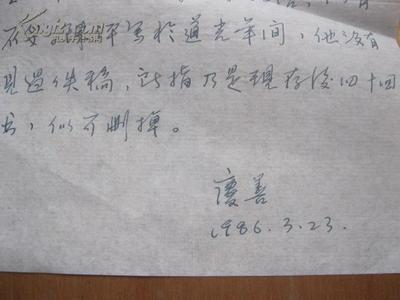 写於道光年间，他没有
见过佚稿，所指乃是现存后四十回
书，似可删掉。
庆善
1986.3.23.